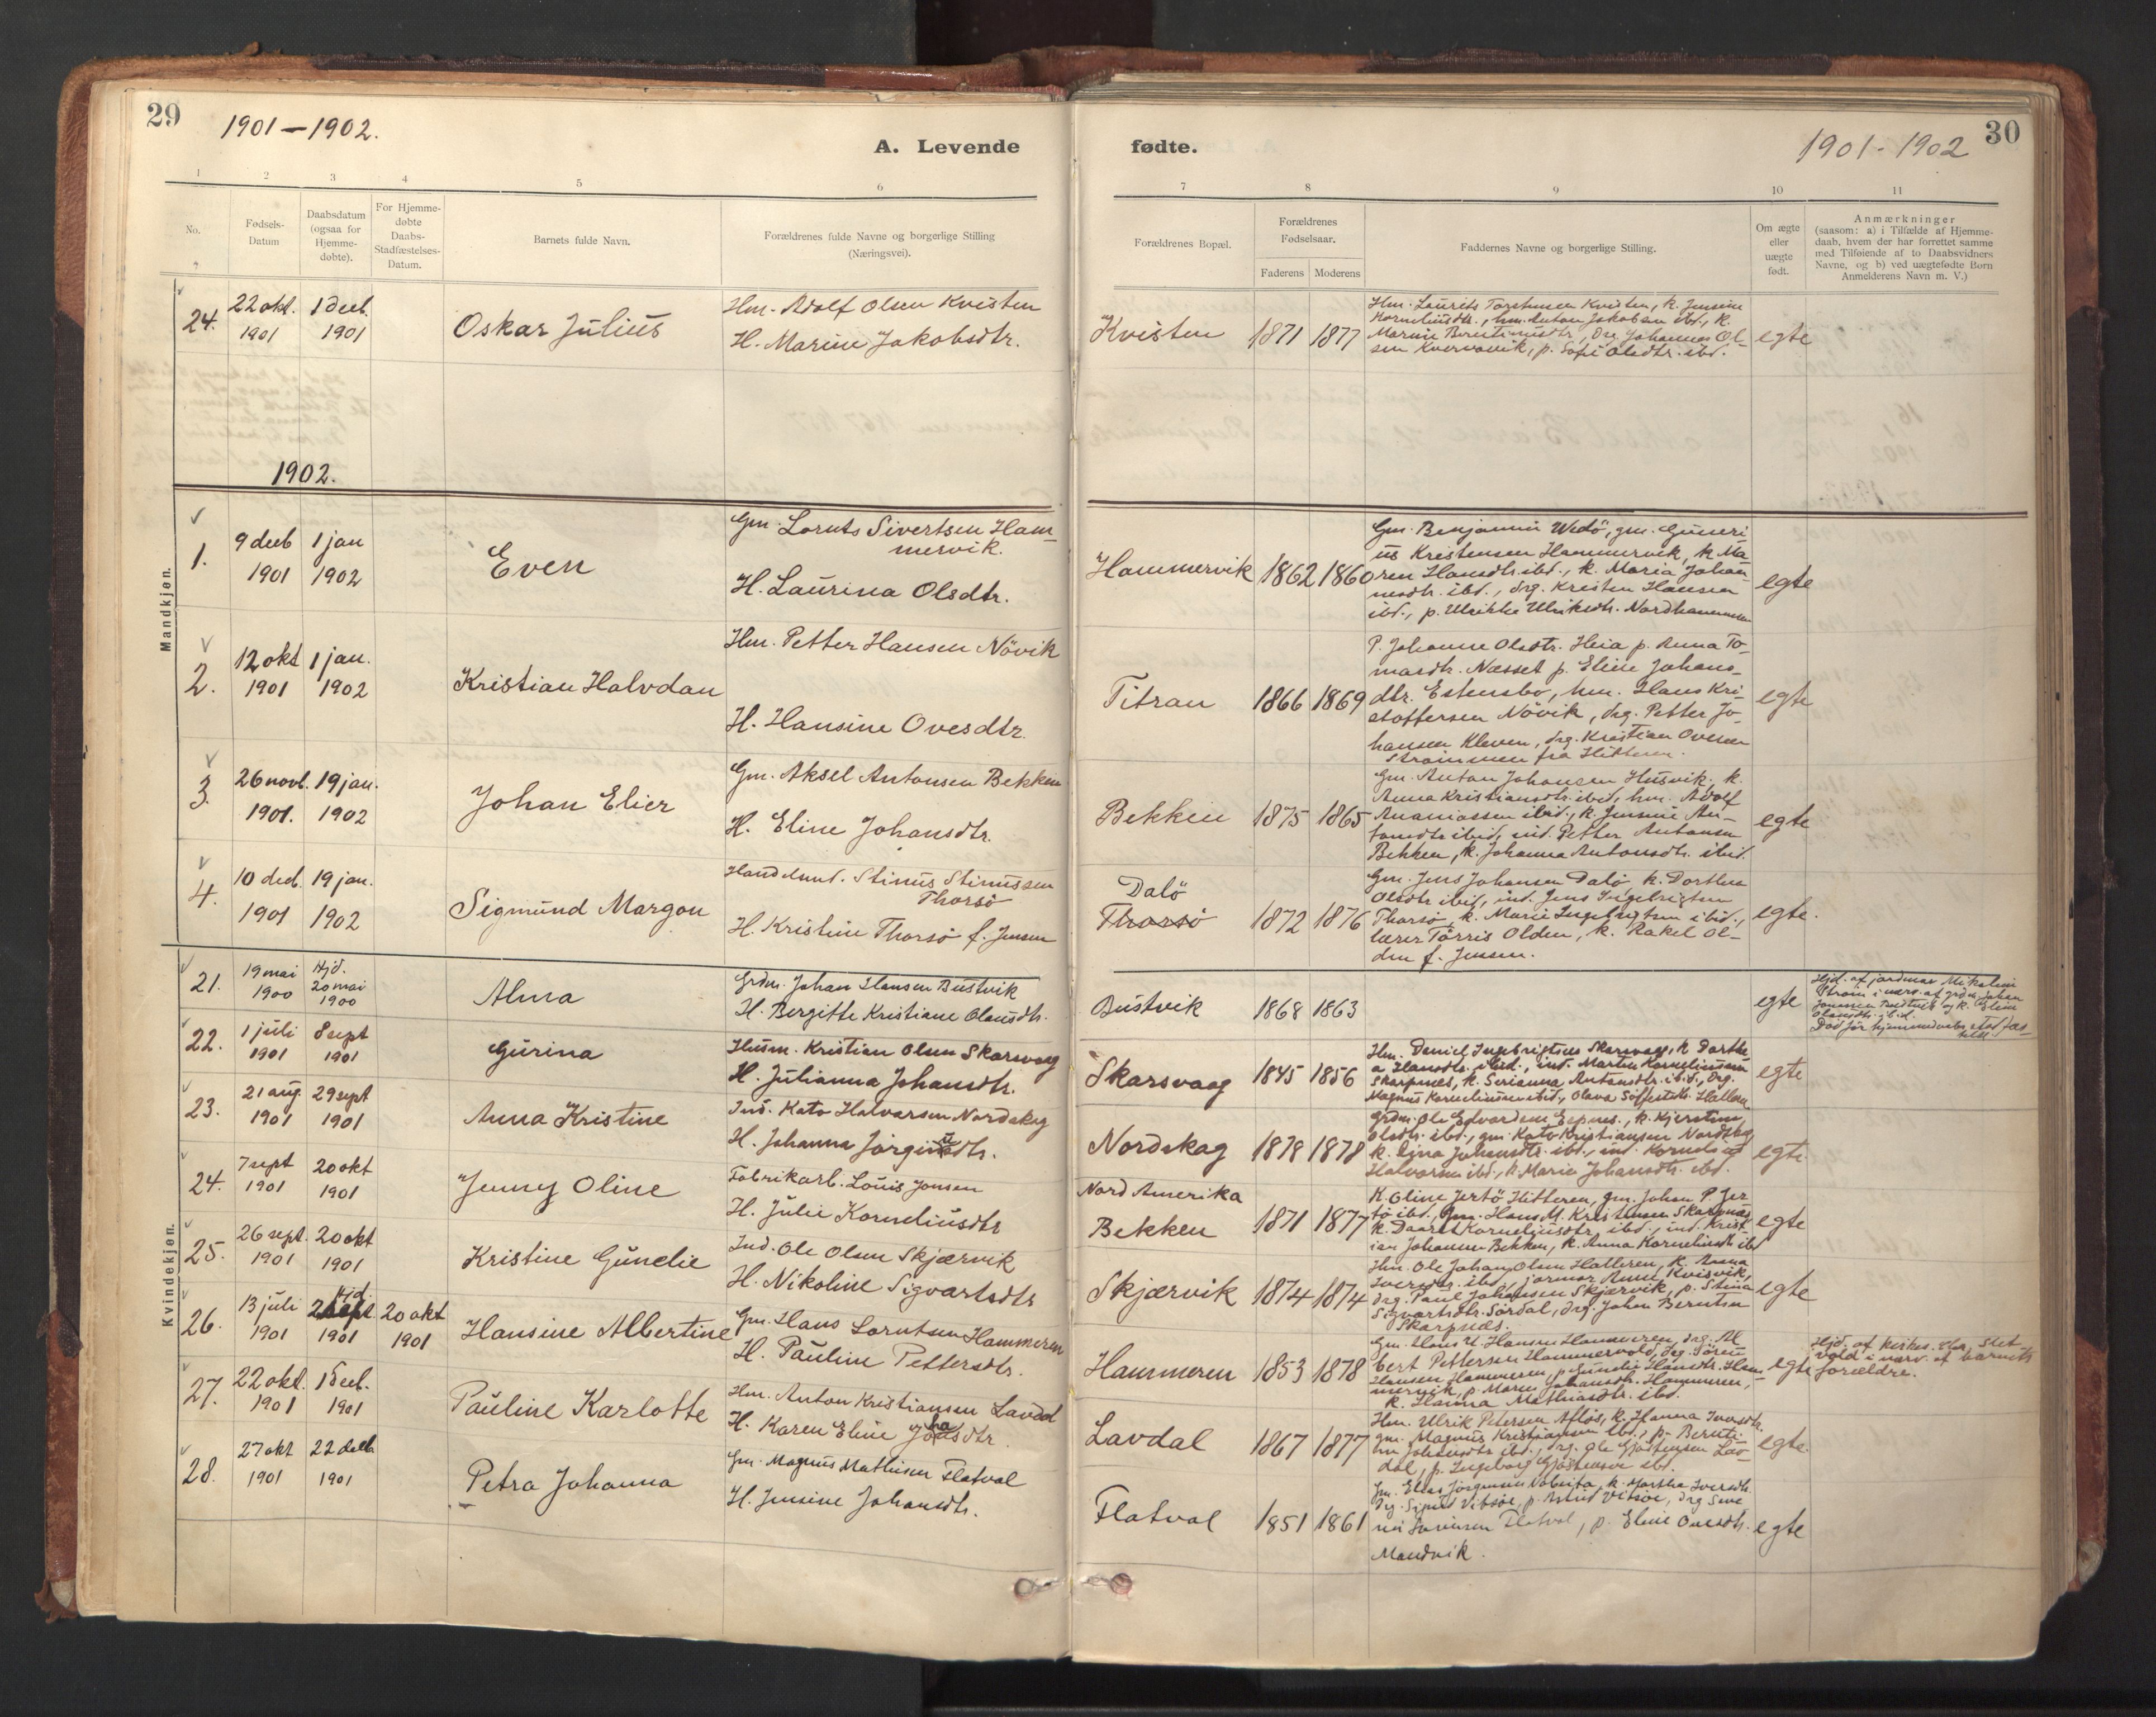 29
1901–1902.
A. Levende
1 2 3 4 5 6
No.
Fødsels-
Datum
Daabsdatum
(ogsaa for
Hjemme-
døbte).
For Hjemme-
døbte
Daabs-
Stadfæstelses-
Datum.
Barnets fulde Navn.
Forældrenes fulde Navne og borgerlige Stilling
(Næringsvei).
Mandkjøn.
24. 22 okt. 1901 1 decb. 1901 Oskar Julius
Hm. Adolf Olsen Kvisten
H. Marine Jakobsdtr.
1902.
1. 9 decb 1901 1 jan 1902 Even
Gm. Lornts Sivertsen Ham-
mervik.
H. Laurina Olsdtr.
2. 12 okt 1901 1 jan. 1902 Kristian Halvdan
Hm. Petter Hansen Növik
H. Hansine Ovesdtr.
3. 26 novb. 1901. 19 jan. 1902 Johan Elier
Gm. Aksel Antonsen Bekken
H. Eline Johansdtr.
4. 10 decb. 1901 19 jan. 1902 Sigmund Margon
Handelsmd. Stinus Stinussen
Thorsö
H. Kristine Thorsö f. Jensen
Kvindekjøn.
21. 19 mai 1900 Hjd. 20 mai 1900 Alma
Grdm. Johan Hansen Bustvik
H. Bergitte Kristiane Olausdtr.
22. 1 juli 1901 8 sept 1901 Gurina
Husm. Kristian Olsen Skarsvaag
H. Julianna Johansdtr.
23. 21 aug. 1901 29 sept 1901 Anna Kristine
Ind. Kato Halvorsen Nordskag
H. Johanna Jörginedtr.
24. 7 sept 1901 20 okt 1901 Jenny Oline
Fabrikarb. Louis Jonsen
H. Julie Korneliusdtr
25. 26 sept. 1901 20 okt 1901 Kristine Gunelie
Ind. Ole Olsen Skjærvik
H. Nikoline Sigvartsdtr
26. 13 juli 1901 Hjd. 2 sept 1901 20 okt 1901 Hansine Albertine
Gm. Hans Lorntsen Hammeren
H. Pauline Pettersdtr.
27. 22 okt. 1901 1 decb. 1901 Pauline Karlotte
Hm. Anton Kristiansen Lavdal
H. Karen Eline Johasdtr
28. 27 okt 1901 22 decb 1901 Petra Johanna
Gm. Magnus Mathisen Flatval
H. Jensine Johansdtr.
fødte.
1901-1902
30
7 8 9 10 11
Forældrenes Bopæl.
Forældrenes
Fødselsaar.
Faderens Moderens
Faddernes Navne og borgerlige Stilling.
Om ægte
eller
uægte
født.
Anmærkninger
(saasom: a) i Tilfælde af Hjemme-
daab, hvem der har forrettet samme
med Tilføiende af to Daabsvidners
Navne, og b) ved uægtefødte Børn
Anmelderens Navn m. V.)
Kvisten 1871 1877
Hm. Laurits Torstensen Kvisten, k. Jensine
Korneliusdtr., hm. Anton Jakobsen ibd., k.
Marine Berntinusdtr., Drg Johannes Ol-
sen Kvervavik, p. Sofie Olsdtr. ibd.
egte
Hammervik 1862 1860
Gm. Benjamin Wedö, gm. Guneri-
us Kristensen Hammervik, k. Ma-
ren Hansdtr. ibd., k. Maria Johan-
nesdtr. ibd., drg. Kristen Hansen
ibd., p. Ulrikke Ulriksdtr. Nordhammeren
egte
Titran 1866 1869
P. Johanne Olsdtr. Heia p. Anna To-
masdtr. Næsset p. Eline Johans-
dtr. Estensbo, hm. Hans Kri-
stoffersen Növik, drg. Petter Jo-
hansen Kleven, drg. Kristian Ovesen
Strömmen fra Hitteren.
egte
Bekken 1875 1865
Gm. Anton Johansen Husvik, k.
Anna Kristiansdtr. ibd., hm. Adolf
Ananiassen ibid., k. Jensine An-
tonsdtr ibid, ind. Petter Antonsen
Bekken, k. Johanna Antonsdtr. ibid.
egte
Dalö
Thorsö 1872 1876
Gm. Jens Johansen Dalö k. Dorthea
Olsdtr ibid, ind. Jens Ingebrigtsen
Thorsö, k. Marie Ingebrigtsen ibid.,
lærer Tørris Olden, k. Rakel Ol-
den f. Jensen.
egte.
Bustvik 1868 1863 egte
Hjd. af jordmor Mikaline
Ström i nærv. af grdm. Johan
Olausdtr. ibid.
Död för hjemmedaaben stadfæs-
tedes
Skarsvaag 1845 1856
Hm. Daniel Ingebrigtsen Skarsvaag, k Dorthe
a Hansdtr. ibid., ind. Martin Korneliussen
Skarpnes, k. Serianna Antonsdtr. ibid., Drg.
Magnus Korneliussen ibid., Olava
egte
Nordskag 1878 1878
Grdm. Ole Edvardsen Espnes, k. Kjerstine
Olsdtr. ibd., gm. Kato Kristiansen Nordskag
k. Lina Johansdtr. ibd., ind. Kornelius
Halvorsen ibd., k. Maria Johansdtr. ibd.
egte.
Nord Amerika
Bekken 1871 1877
K. Oline Jertö Hitteren, gm. Johan P. Jer
tö ibd., Gm. Hans M. Kristensen Skarpnæs,
k. Daaret Korneliusdtr. ibd., ind. Krist
ian Johansen Bekken, k. Anna Korneliusdtr ibd
egte
Skjærvik 1874 1874
Hm. Ole Johan Olsen Hallaren, k. Anna
Iversdtr. ibd., jormor Anne Kvisvik,
drg. Paul Johansen Skjærvik, p. Stina
Sigvartsdtr. Sördal, drg. Johan Berntsen
Skarpnæs.
egte
Hammeren 1853 1878
Gm. Hans U. Hansen Hammeren, drg. Al
bert Pettersen Hammervold, drg. Sören
Hansen Hammeren, p Gunelie Hansdtr. Ham-
mervik, p. Maren Johansdtr. Hammeren,
k. Hanna Mathiasdtr. ibd.
egte
Hjd. af kirkes. Slet-
vold i nærv. af barnets
forældre.
Lavdal 1867 1877
Hm. Ulrik Petersen Aflös, k. Hanna
gm. Magnus Kristiansen ibd., p. Bernti-
ne Johansdtr ibd., drg. Ole Gjöstensen Lav-
dal, p. Ingeborg ibd.
egte.
Flatval 1851 1861
Gm. Elias Jörgensen k. Martha Iversdtr.
drg. Sivert Vitsöe, p. Astrid Vitsöe, drg Seve
rin Sörensen Flatval, p. Eline Ovesdtr.
Mandvik.
egte